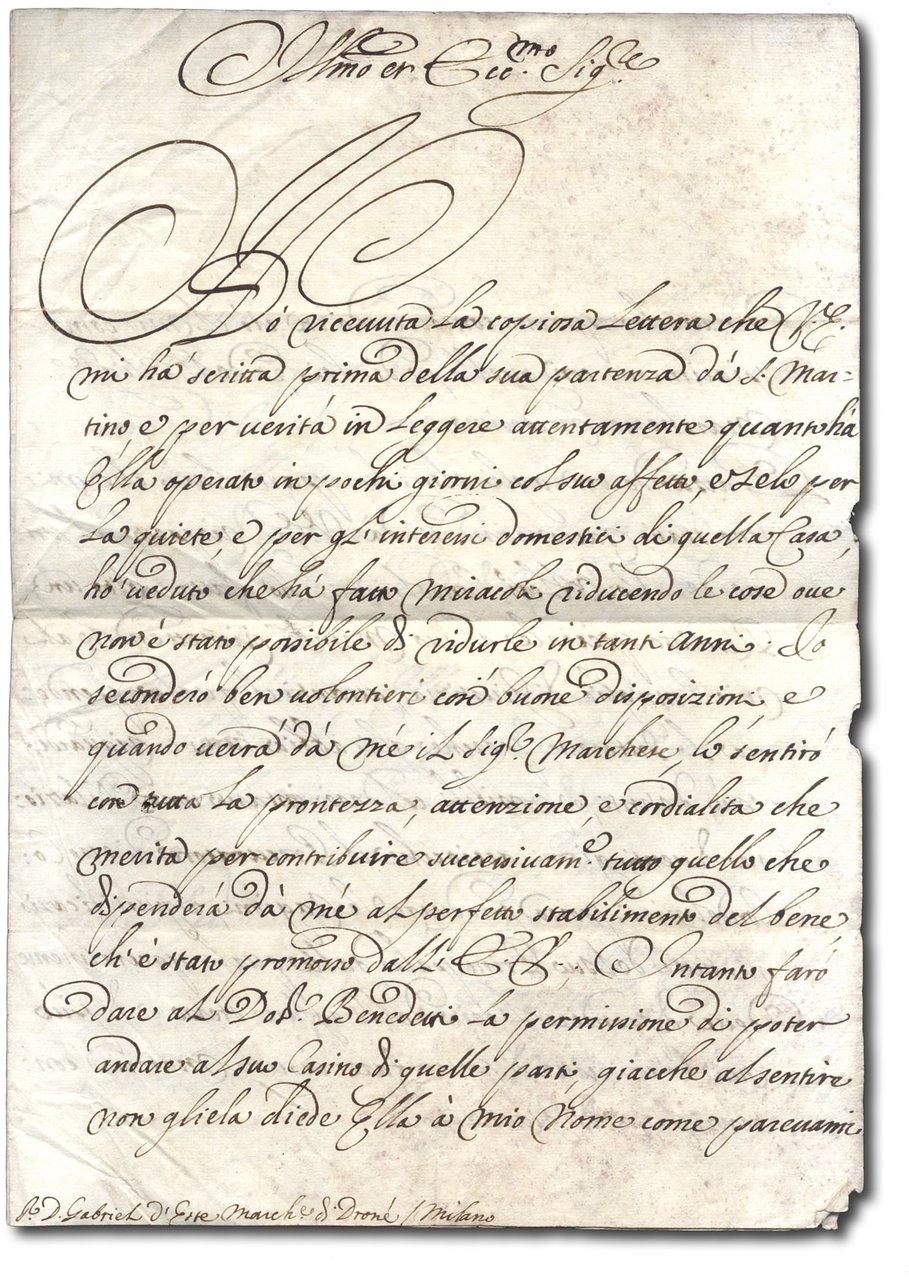 Illmo et Ecc.mo Sig.re
Hó ricevuta la copiosa lettera che V.E.
mi há scritta prima della sua partenza dá S. Mar=
tino e per veritá in leggere attentamente quanto há
Ella operato in pochi giorni col suo affetto, e zelo per
la quiete, e per gl'interessi domestici di quella Casa,
hó veduto che há fatto miracoli riducendo le cose ove
non é stato possibile di ridurle in tanti anni. Io
seconderó ben volontieri cosí buone disposizioni e
quando verrá dá mé il Sig.r Marchese, ló sentiró
con tutta la prontezza, attenzione, e cordialitá che
merita per contribuire successivam.e tutto quello che
dipenderá dá mé al perfetto stabilimento del bene,
ch'é stato promosso dall'E.V. Intanto faró
dare al Dot.r Benedetti la permissione di poter
andare al suo Casino di quelle parti, giacche al sentire
non gliela diede Ella á mio nome come parevami
D. Gabriel d'Este March.e di Droné / Milano